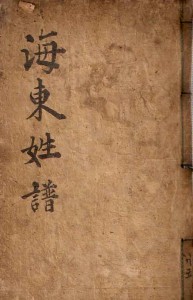 海東姓譜